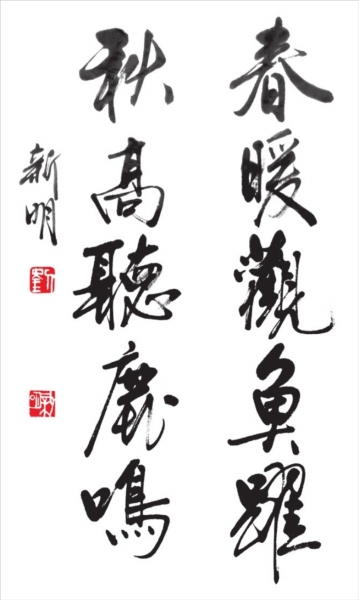 春暖觀魚躍
秋高聽鹿鳴
新明
劉